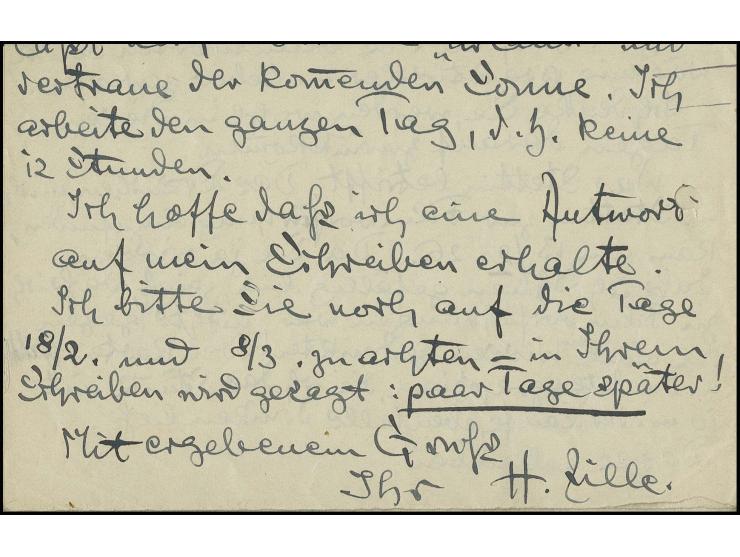 vertraue der kom̅enden Sonne. Ich
arbeite den ganzen Tag, d.h. keine
12 Stunden.
Ich hoffe daß ich eine Antwort
auf mein Schreiben erhalte.
Ich bitte Sie noch auf die Tage
18/2. und 8/3. zu achten = in Ihrem
Schreiben wird gesagt: paar Tage später!
Mit ergebenem Gruß
Ihr H. Zille.